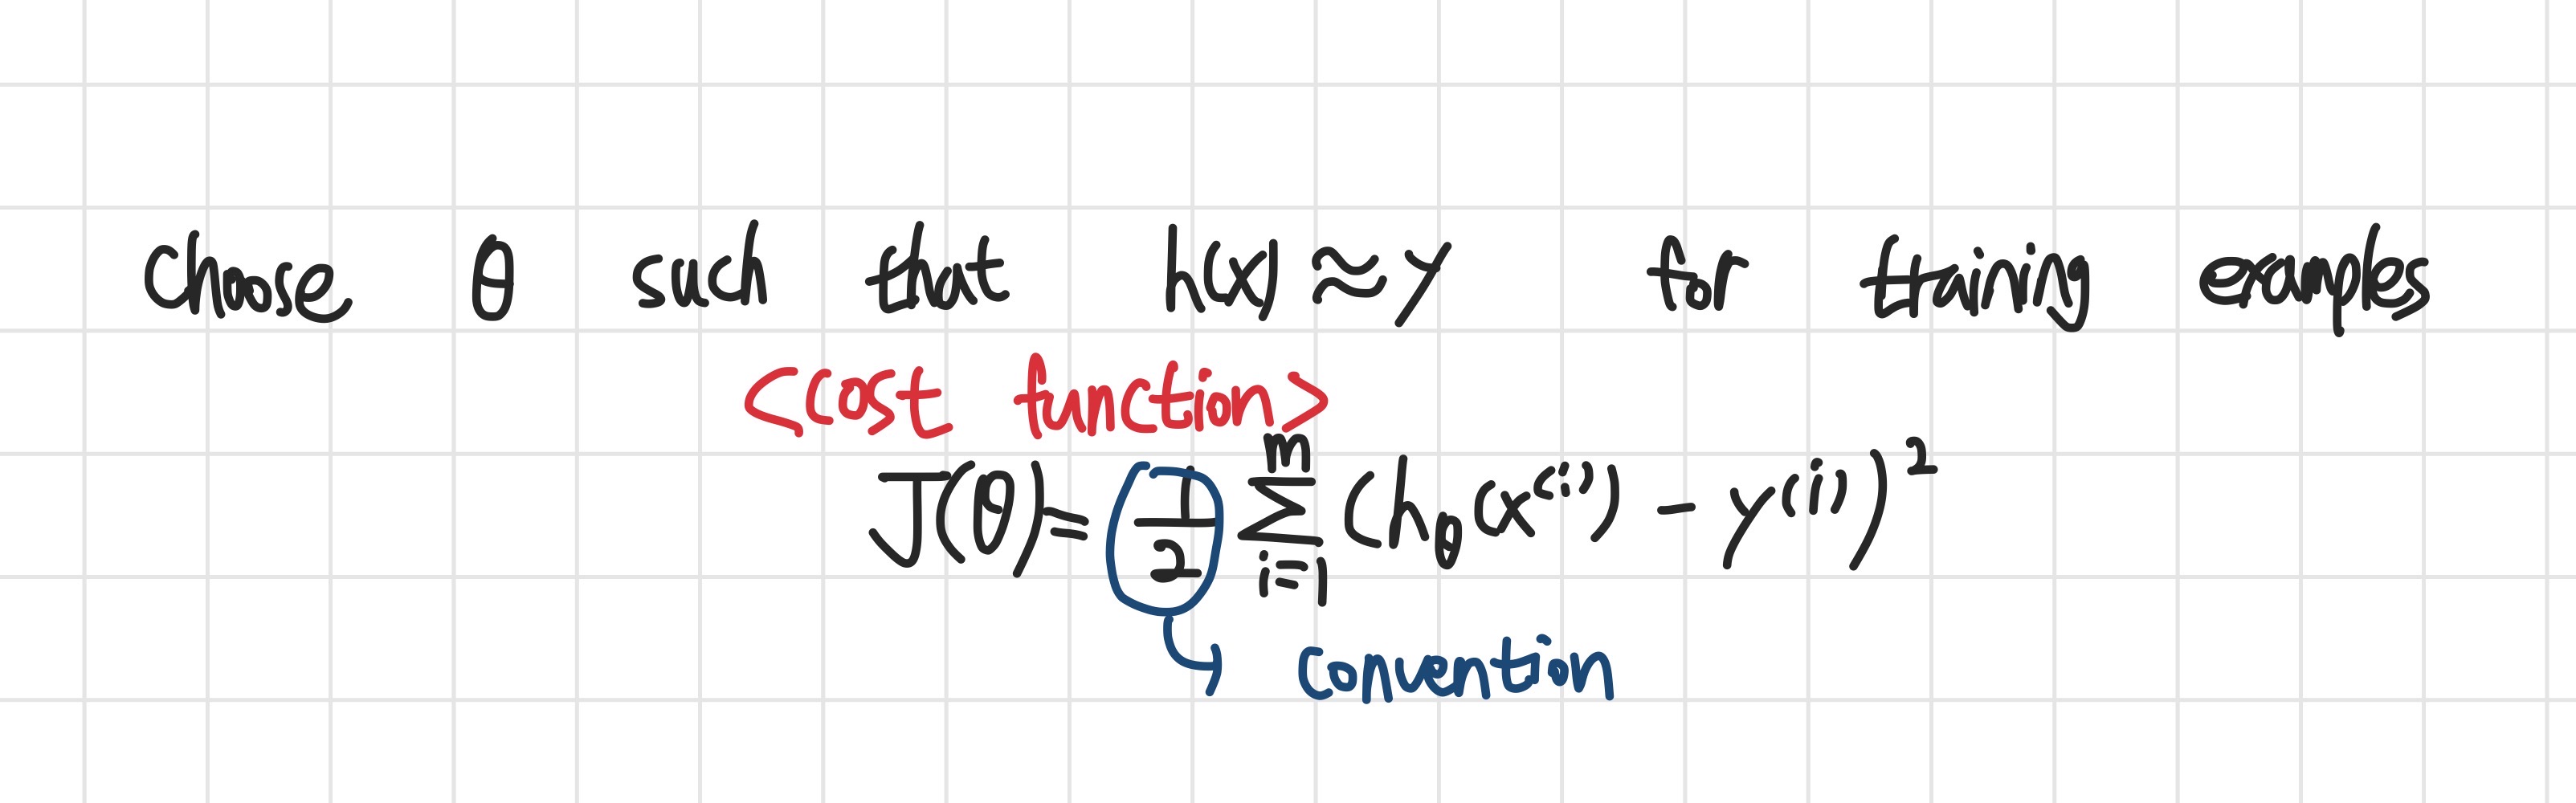 Choose θ such that h(x) ≈ y for training examples
<cost function>
J(θ) = 1/2 ∑_{i=1}^{m} (h_θ(x^{(i)}) - y^{(i)})^2
convention